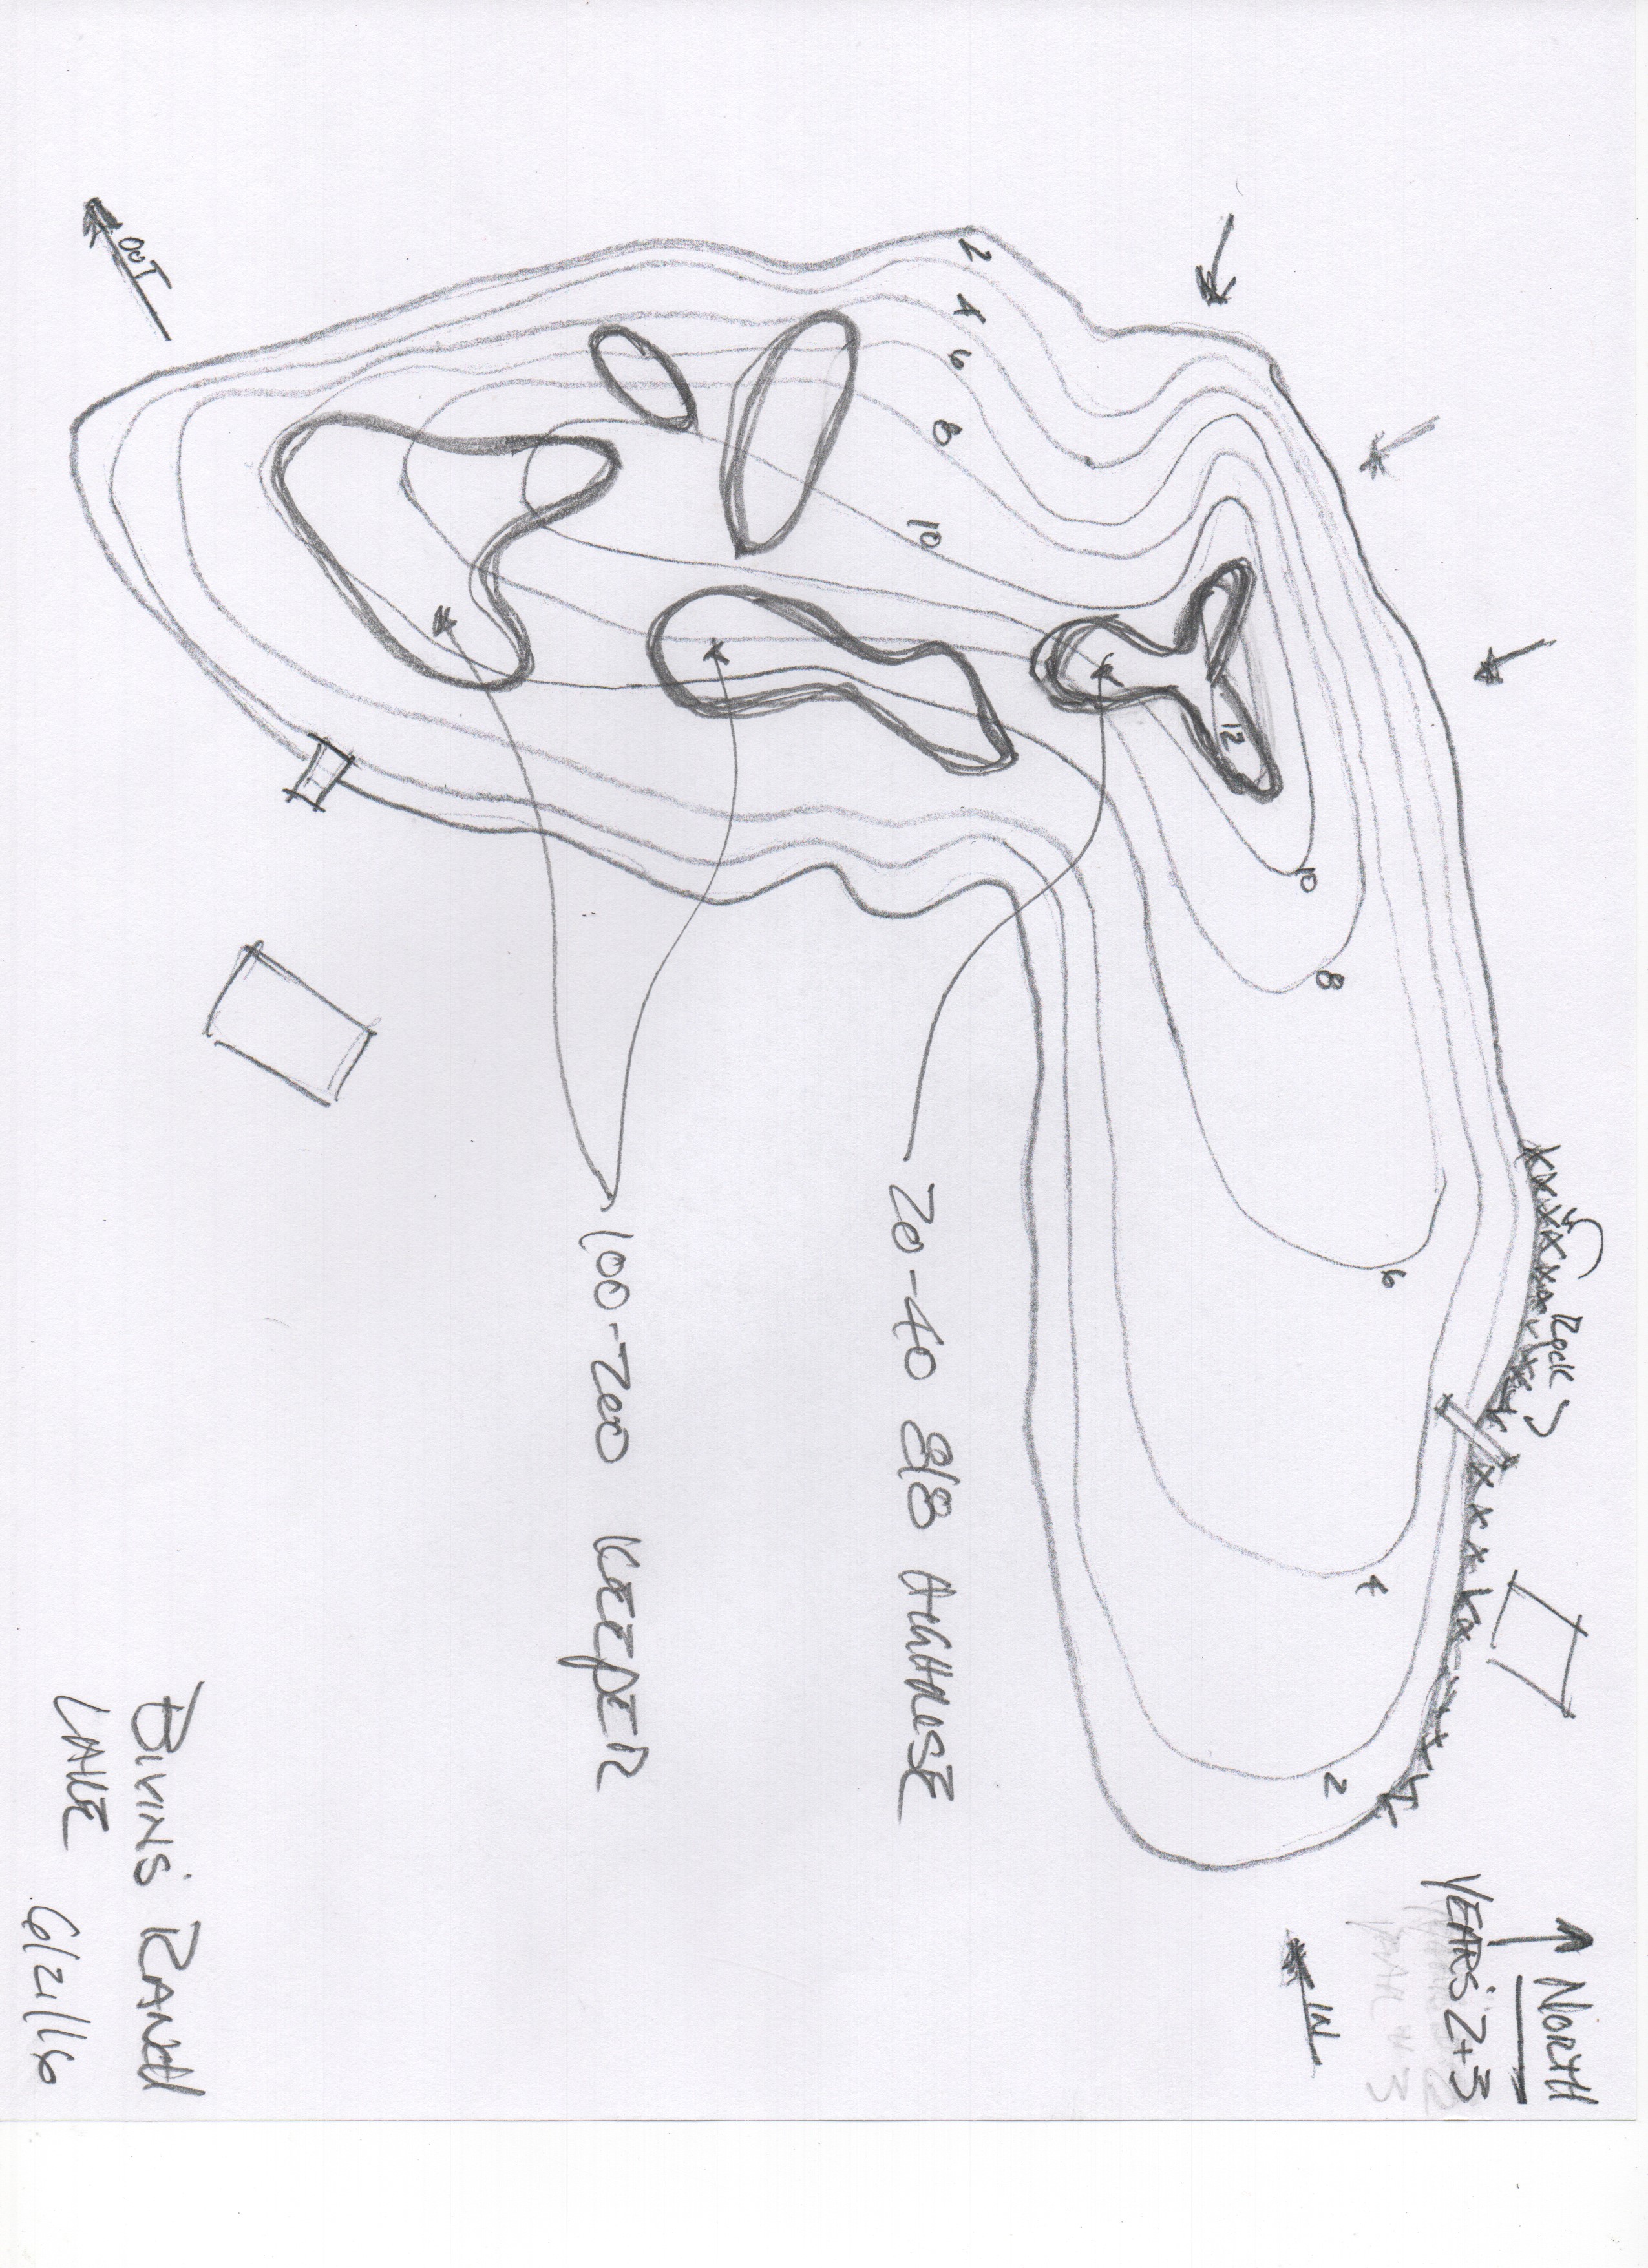 NORTH
YEARS 2+3
Rock
IN
6
4
2
8
10
12
2
4
6
8
10
20-40 8/8
100-200 KEEPER
OUT
BIVINS RANCH
LAKE 6/21/16